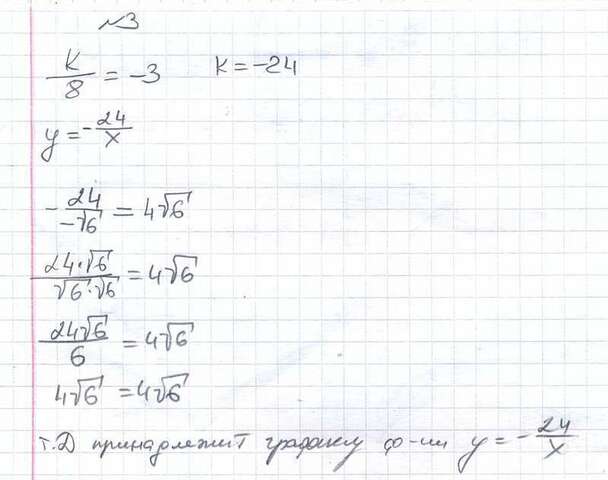 №3
K/8 = -3    K = -24
y = -24/x
-24/-√6 = 4√6
24·√6/√6·√6 = 4√6
24√6/6 = 4√6
4√6 = 4√6
т.D принадлежит графику ф-ии y = -24/x